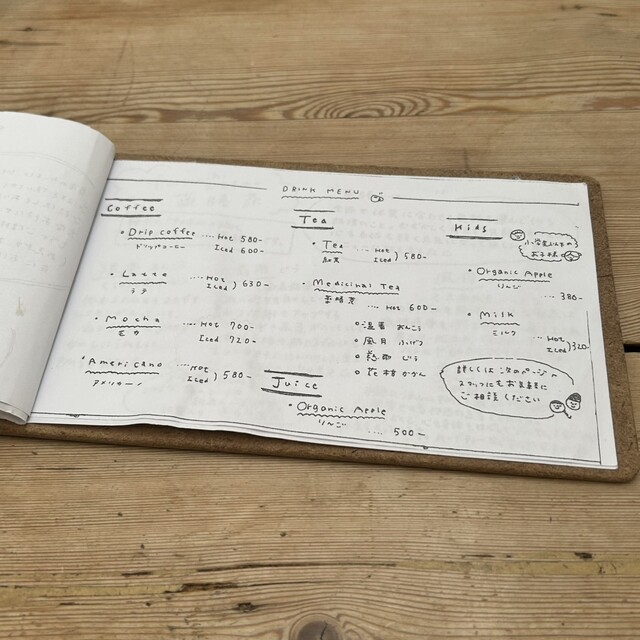 DRINK MENU
Coffee
Drip coffee .... Hot 580-
ドリップコーヒー Iced 600-
Latte ... Hot
ラテ Iced ) 630-
Mocha ... Hot 700-
モカ Iced 720-
Americano ... Hot
アメリカーノ Iced ) 580-
Tea
Tea ... Hot
紅茶 Iced ) 580-
Medicinal Tea
... Hot 600-
温番 おんこう
風月 ふげつ
じう
花樹 かかん
Juice
Organic Apple
りんご .... 500-
Kids
小学生以下の
お子様
Organic Apple
りんご ... 380-
Milk
ミルク ... Hot
Iced ) 320-
詳しくは次のページか
スタッフにもお気軽に
ご相談ください